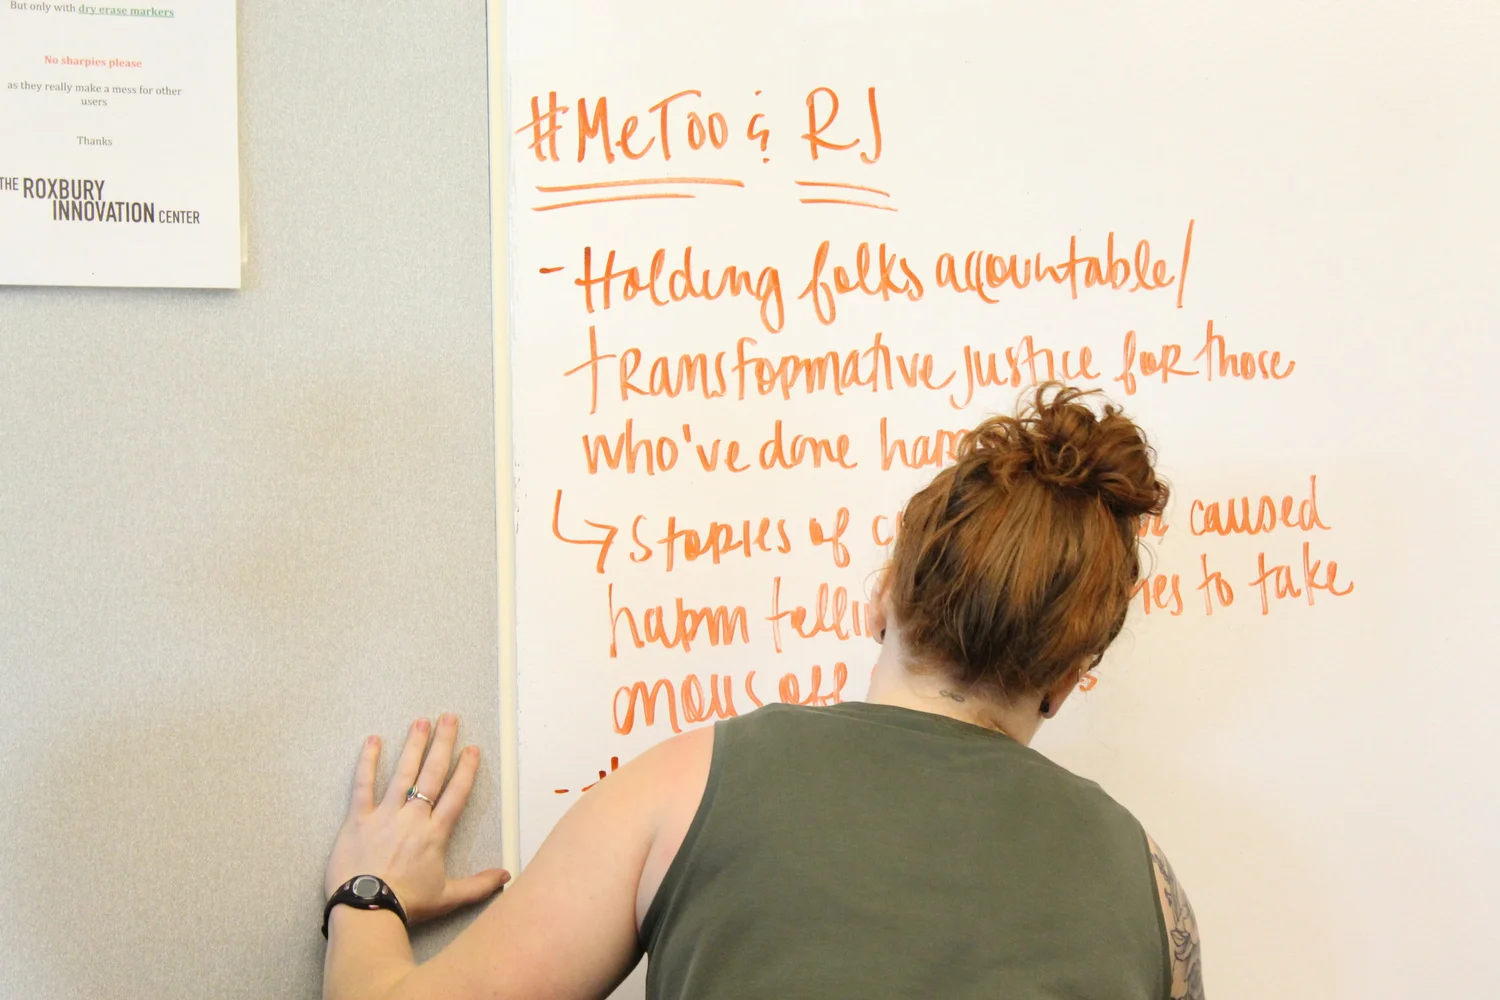 But only with dry erase markers
No sharpies please
as they really make a mess for other
users
Thanks
THE ROXBURY
INNOVATION CENTER
#MeToo & RJ
- Holding folks accountable/
transformative justice for those
who've done
Stories of caused
harm to take
off